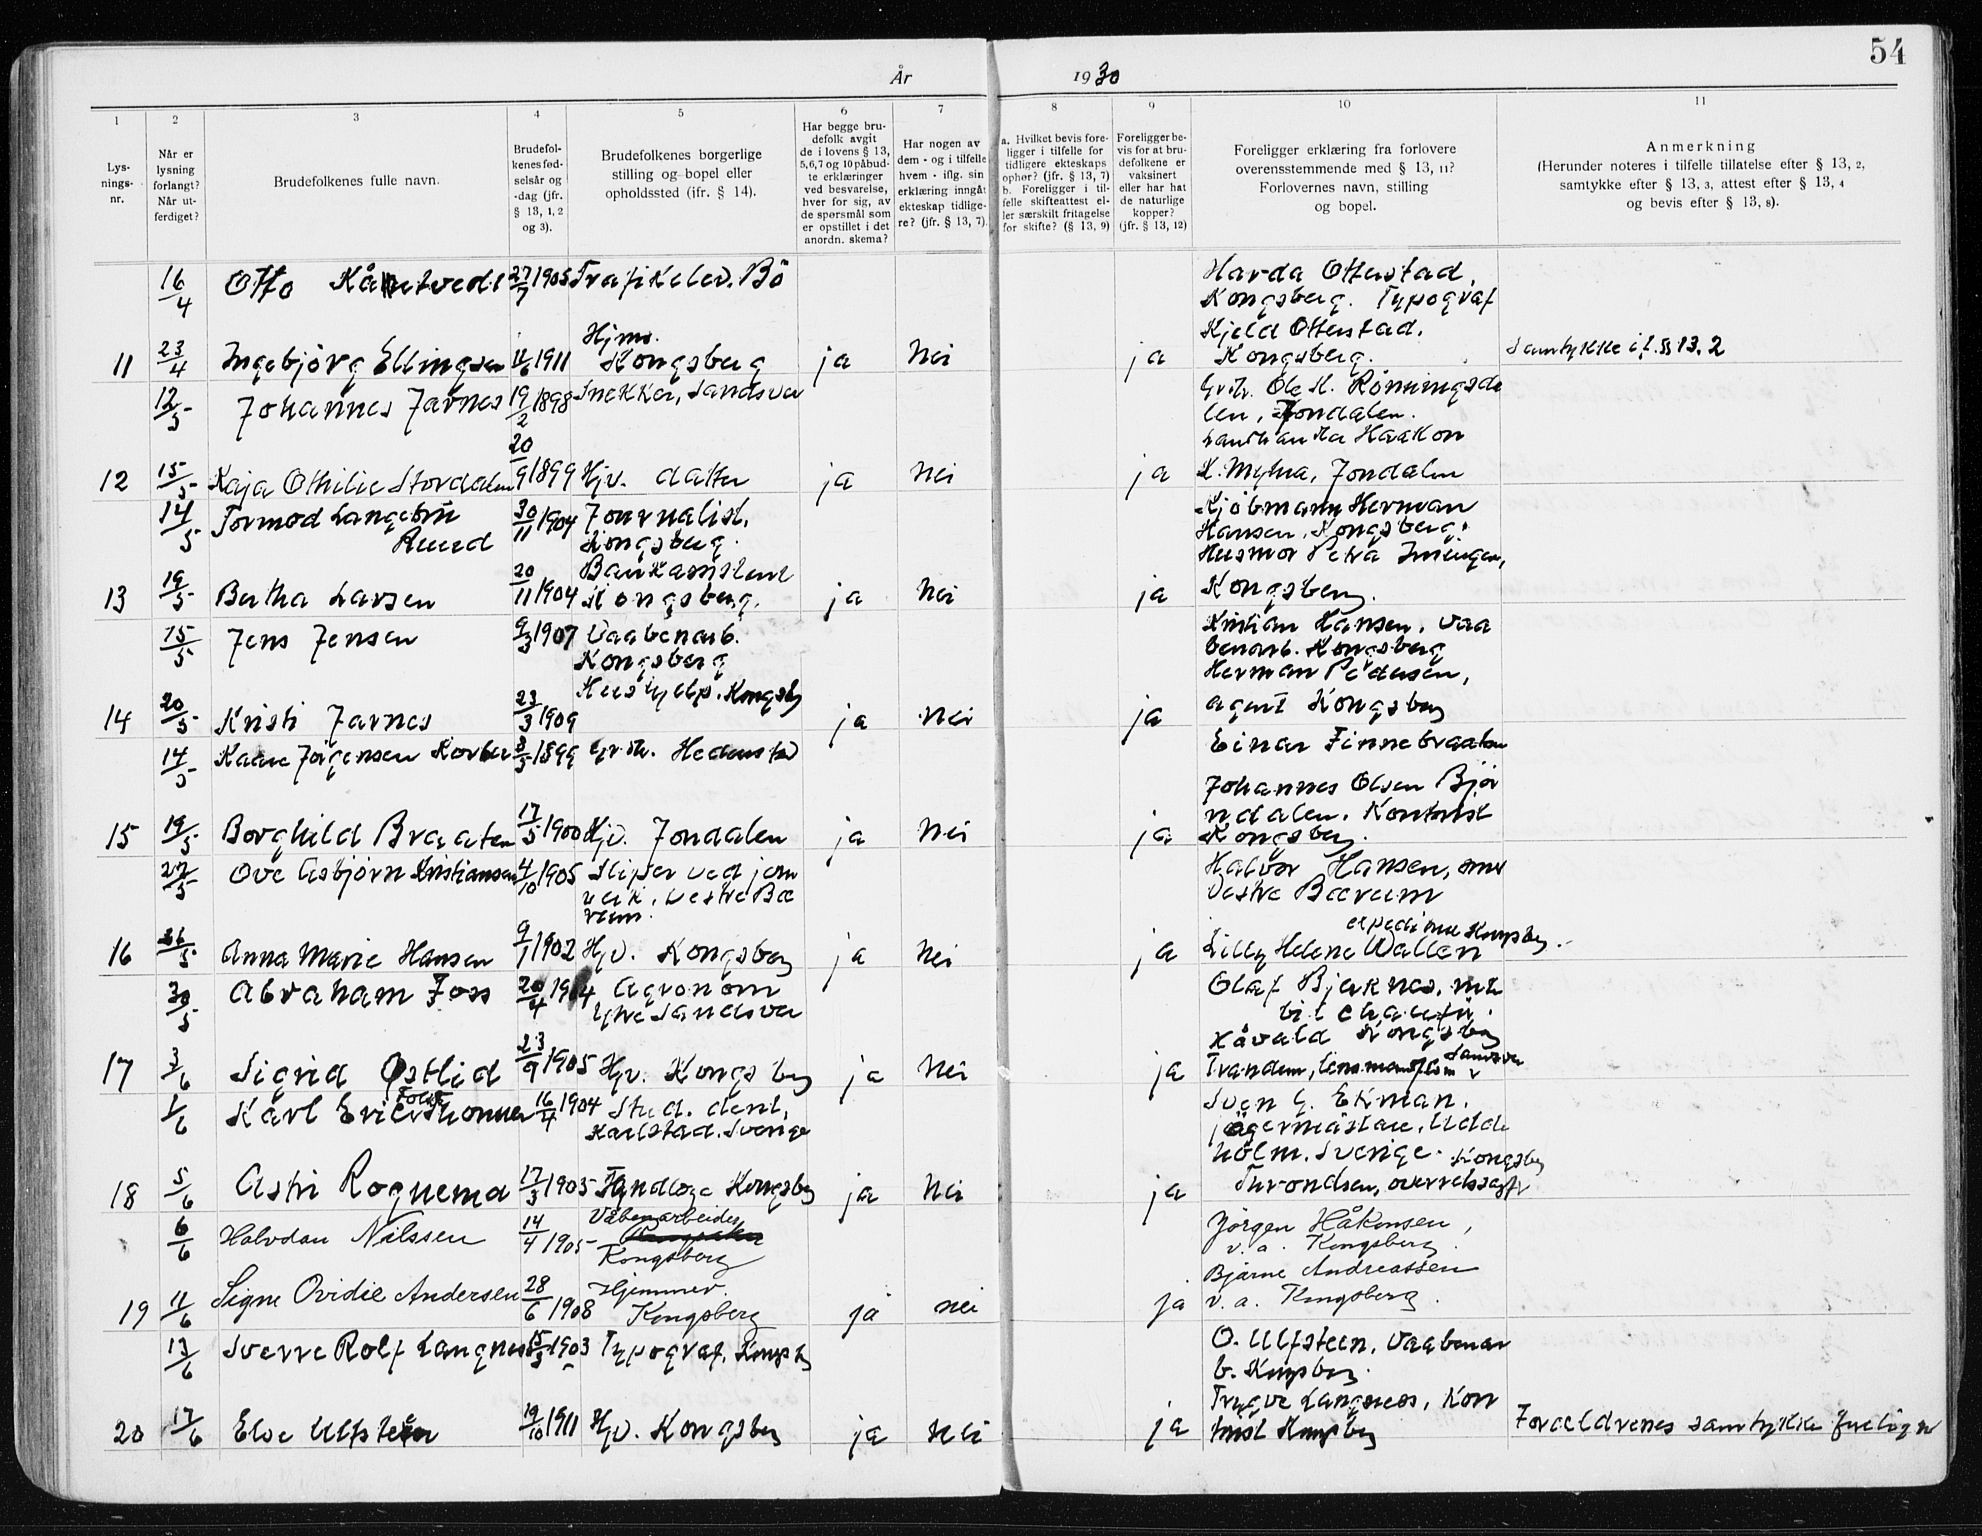 54
År 1930
1 2 3 4 5 6 7 8 9 10 11
Lys-
nings-
nr.
Når er
lysning
forlangt?
Når ut-
ferdiget?
Brudefolkenes fulle navn.
Brudefol-
kenes fød-
selsår og
-dag (jfr.
§ 13, 1, 2
og 3).
Brudefolkenes borgerlige
stilling og bopel eller
opholdssted (ifr. § 14).
Har begge bru-
defolk avgit
de i lovens § 13,
5,6,7 og 10 påbud-
te erklæringer
ved besvarelse,
hver for sig, av
de spørsmål som
er opstillet i det
anordn. skema?
Har nogen av
dem - og i tilfelle
hvem - iflg. sin
erklæring inngåt
ekteskap tidlige-
re? (jfr. § 13, 7).
a. Hvilket bevis fore-
ligger i tilfelle for
tidligere ekteskaps
ophør? (jfr. § 13, 7)
b. Foreligger i til-
felle skifteattest el-
ler særskilt fritagelse
for skifte? (§ 13, 9)
Foreligger be-
vis for at bru-
defolkene er
vaksinert
eller har hat
de naturlige
kopper?
(jfr. § 13, 12)
Foreligger erklæring fra forlovere
overensstemmende med § 13, 11?
Forlovernes navn, stilling
og bopel.
Anmerkning
(Herunder noteres i tilfelle tillatelse efter § 13, 2,
samtykke efter § 13, 3, attest efter § 13, 4
og bevis efter § 13, 8).
16/4 Otto 27/7 1905 Trafikelev. Bö
Harda Ottestad,
Kongsberg. Typograf
Kjeld Ottestad.
Hjms.
11 23/4 Ingebjörg Ellingsen 1911 Kongsberg ja Nei ja Kongsberg. Samtykke i f. § 13. 2
12/5 Johannes Jarnes 19/2 1898 Snekker, Sandsvær
Ole H. Rönningsda
len, Jondalen.
Haakon
12 15/5 Kaja Othilie Stordalen 20/9 1899 Hjv. datter ja Nei ja K. Myhra, Jondalen
14/5 Tormod Langebru 30/11 1904 Journalist,
Ruud Kongsberg.
Kjöbmann Herman
Hansen, Kongsberg.
Husmor Petra
Bankassistent
13 19/5 Bertha Larsen 20/11 1904 Kongsberg. ja Nei ja Kongsberg.
15/5 Jens Jensen 9/3 1907 Vaabenarb.
Kongsberg
Kristian Hansen, vaa
benarb. Kongsberg
Herman Pedersen,
Hushjelp. Kongsbg
14 20/5 Kristi Jarnes 23/3 1909 ja Nei ja agent Kongsberg
14/5 Kaare Jörgensen 3/5 1899
Einar Finnebraaten
Johannes Olsen Björ
ndalen. Kontorist
15 19/5 Borghild Braaten 17/5 1900 Hjv. Jondalen ja Nei ja Kongsberg.
22/5 Ove Asbjörn Kristiansen 4/10 1905 Sliper ved jern
verk, Vestre Bæ
rum.
Halvor Hansen,
Vestre Bærum
16 26/5 Anna Marie Hansen 9/1 1902 Hjv. Kongsberg ja Nei ja Lilly Helene Wallen
30/5 Abraham Foss 20/4 1904 Agronom
Ytre Sandsvær
Olaf Bjerknes,
bilchauför.
Håvald Kongsberg
17 3/6 Sigrid Östlid 23/9 1905 Hjv. Kongsberg ja Nei ja Trandem,
1/6 Karl Eric 16/4 1904 Stud. dent,
Karlstad. Sverige
Sven G. Ekman.
jägermästare, Udde
holm. Sverige. Kongsbg
18 5/6 Astri Roquema 17/3 1905 Tandlæge Kongsberg ja Nei ja Throndsen, overretssagf
6/6 Halvdan Nilssen 14/4 1905 Våbenarbeider
Kongsberg
Jörgen Håkonsen,
v. a. Kongsberg.
Bjarne Andreassen
19 11/6 Signe Ovidie Andersen 28/6 1908 Hjemmev.
Kongsberg ja nei ja v. a. Kongsberg.
13/6 Sverre Rolf Langnes 15/3 1903 Typograf, Kongsbg
O. Ulfsteen, Vaabenar
b. Kongsberg.
Trygve Langnes, Kon
20 17/6 Else Ulfsteen 19/10 1911 Hjv. Kongsberg ja Nei ja torist Kongsberg Forældrenes samtykke foreligger